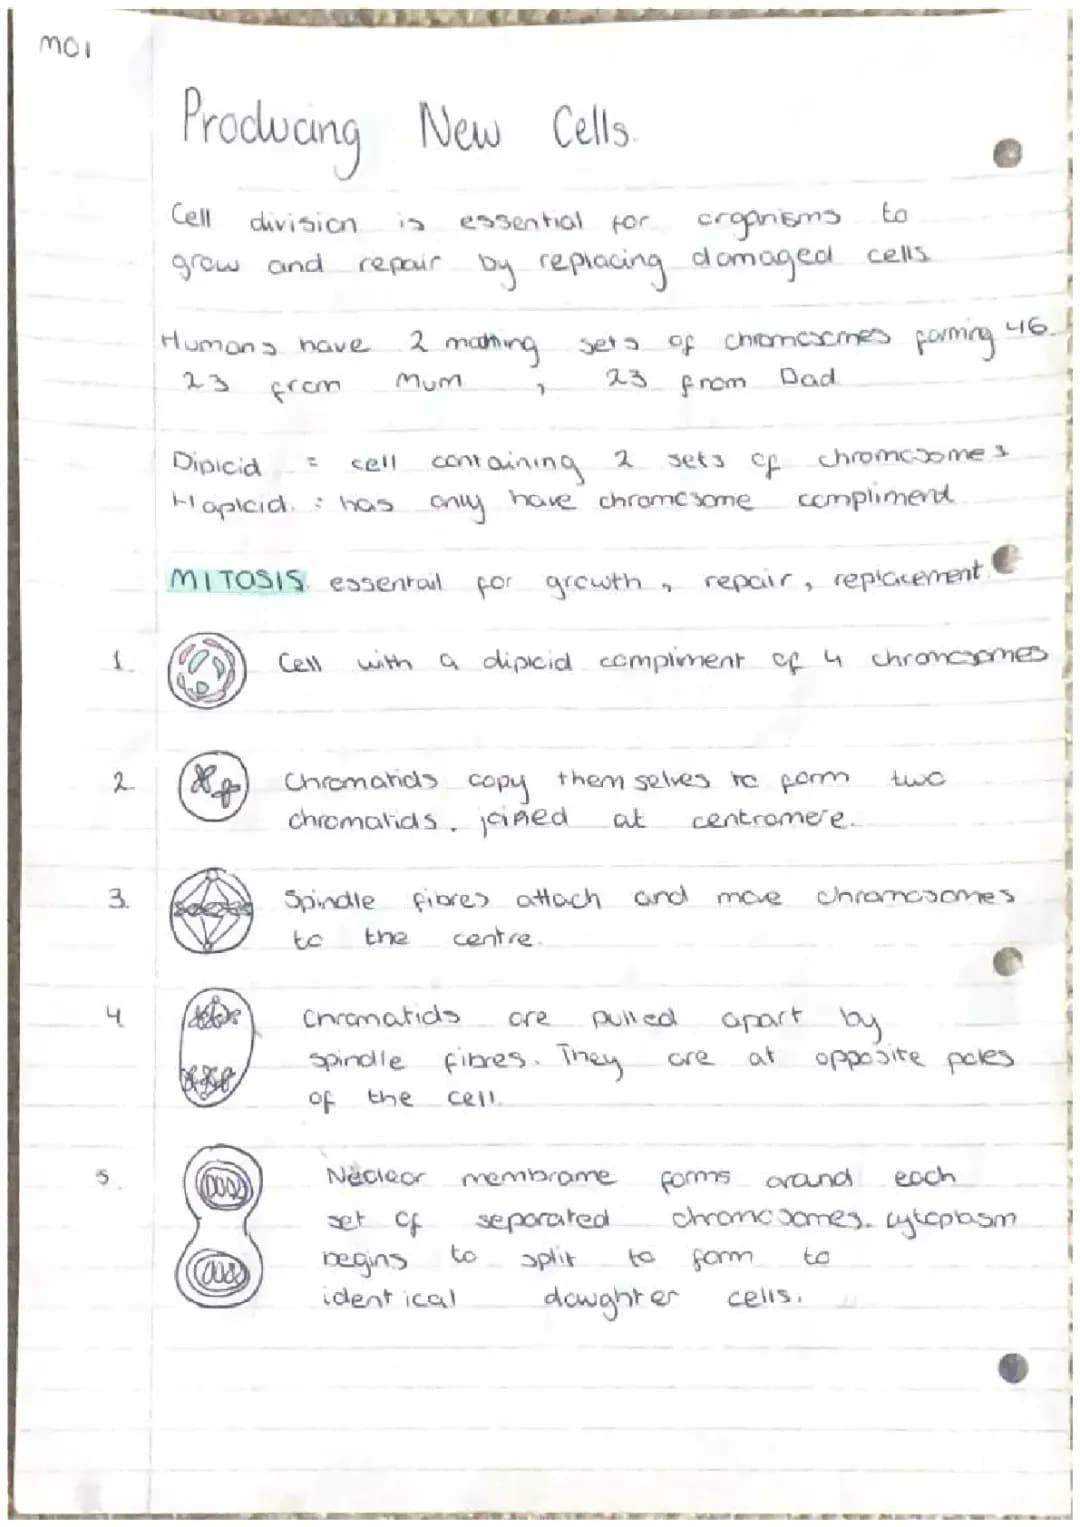 MO1
Producing New Cells.
Cell division is essential for organisms to
grow and repair by replacing damaged cells
Humans have 2 mathing sets of chromosomes forming 46.
23 from Mum, 23 from Dad
Diploid = cell containing 2 sets of chromosomes
Haploid. : has only have chromosome compliment
MITOSIS. essentail for growth, repair, replacement.
1. Cell with a diploid compliment of 4 chromosomes
2. Chromatids copy them selves to form two
chromatids. joined at centromere.
3. Spindle fibres attach and move chromosomes
to the centre.
4 Chromatids are pulled apart by
spindle fibres. They are at opposite poles
of the cell.
5. Neclear membrame forms around each
set of separated chromosomes. cytoplasm
begins to split to form to
identical daughter cells.